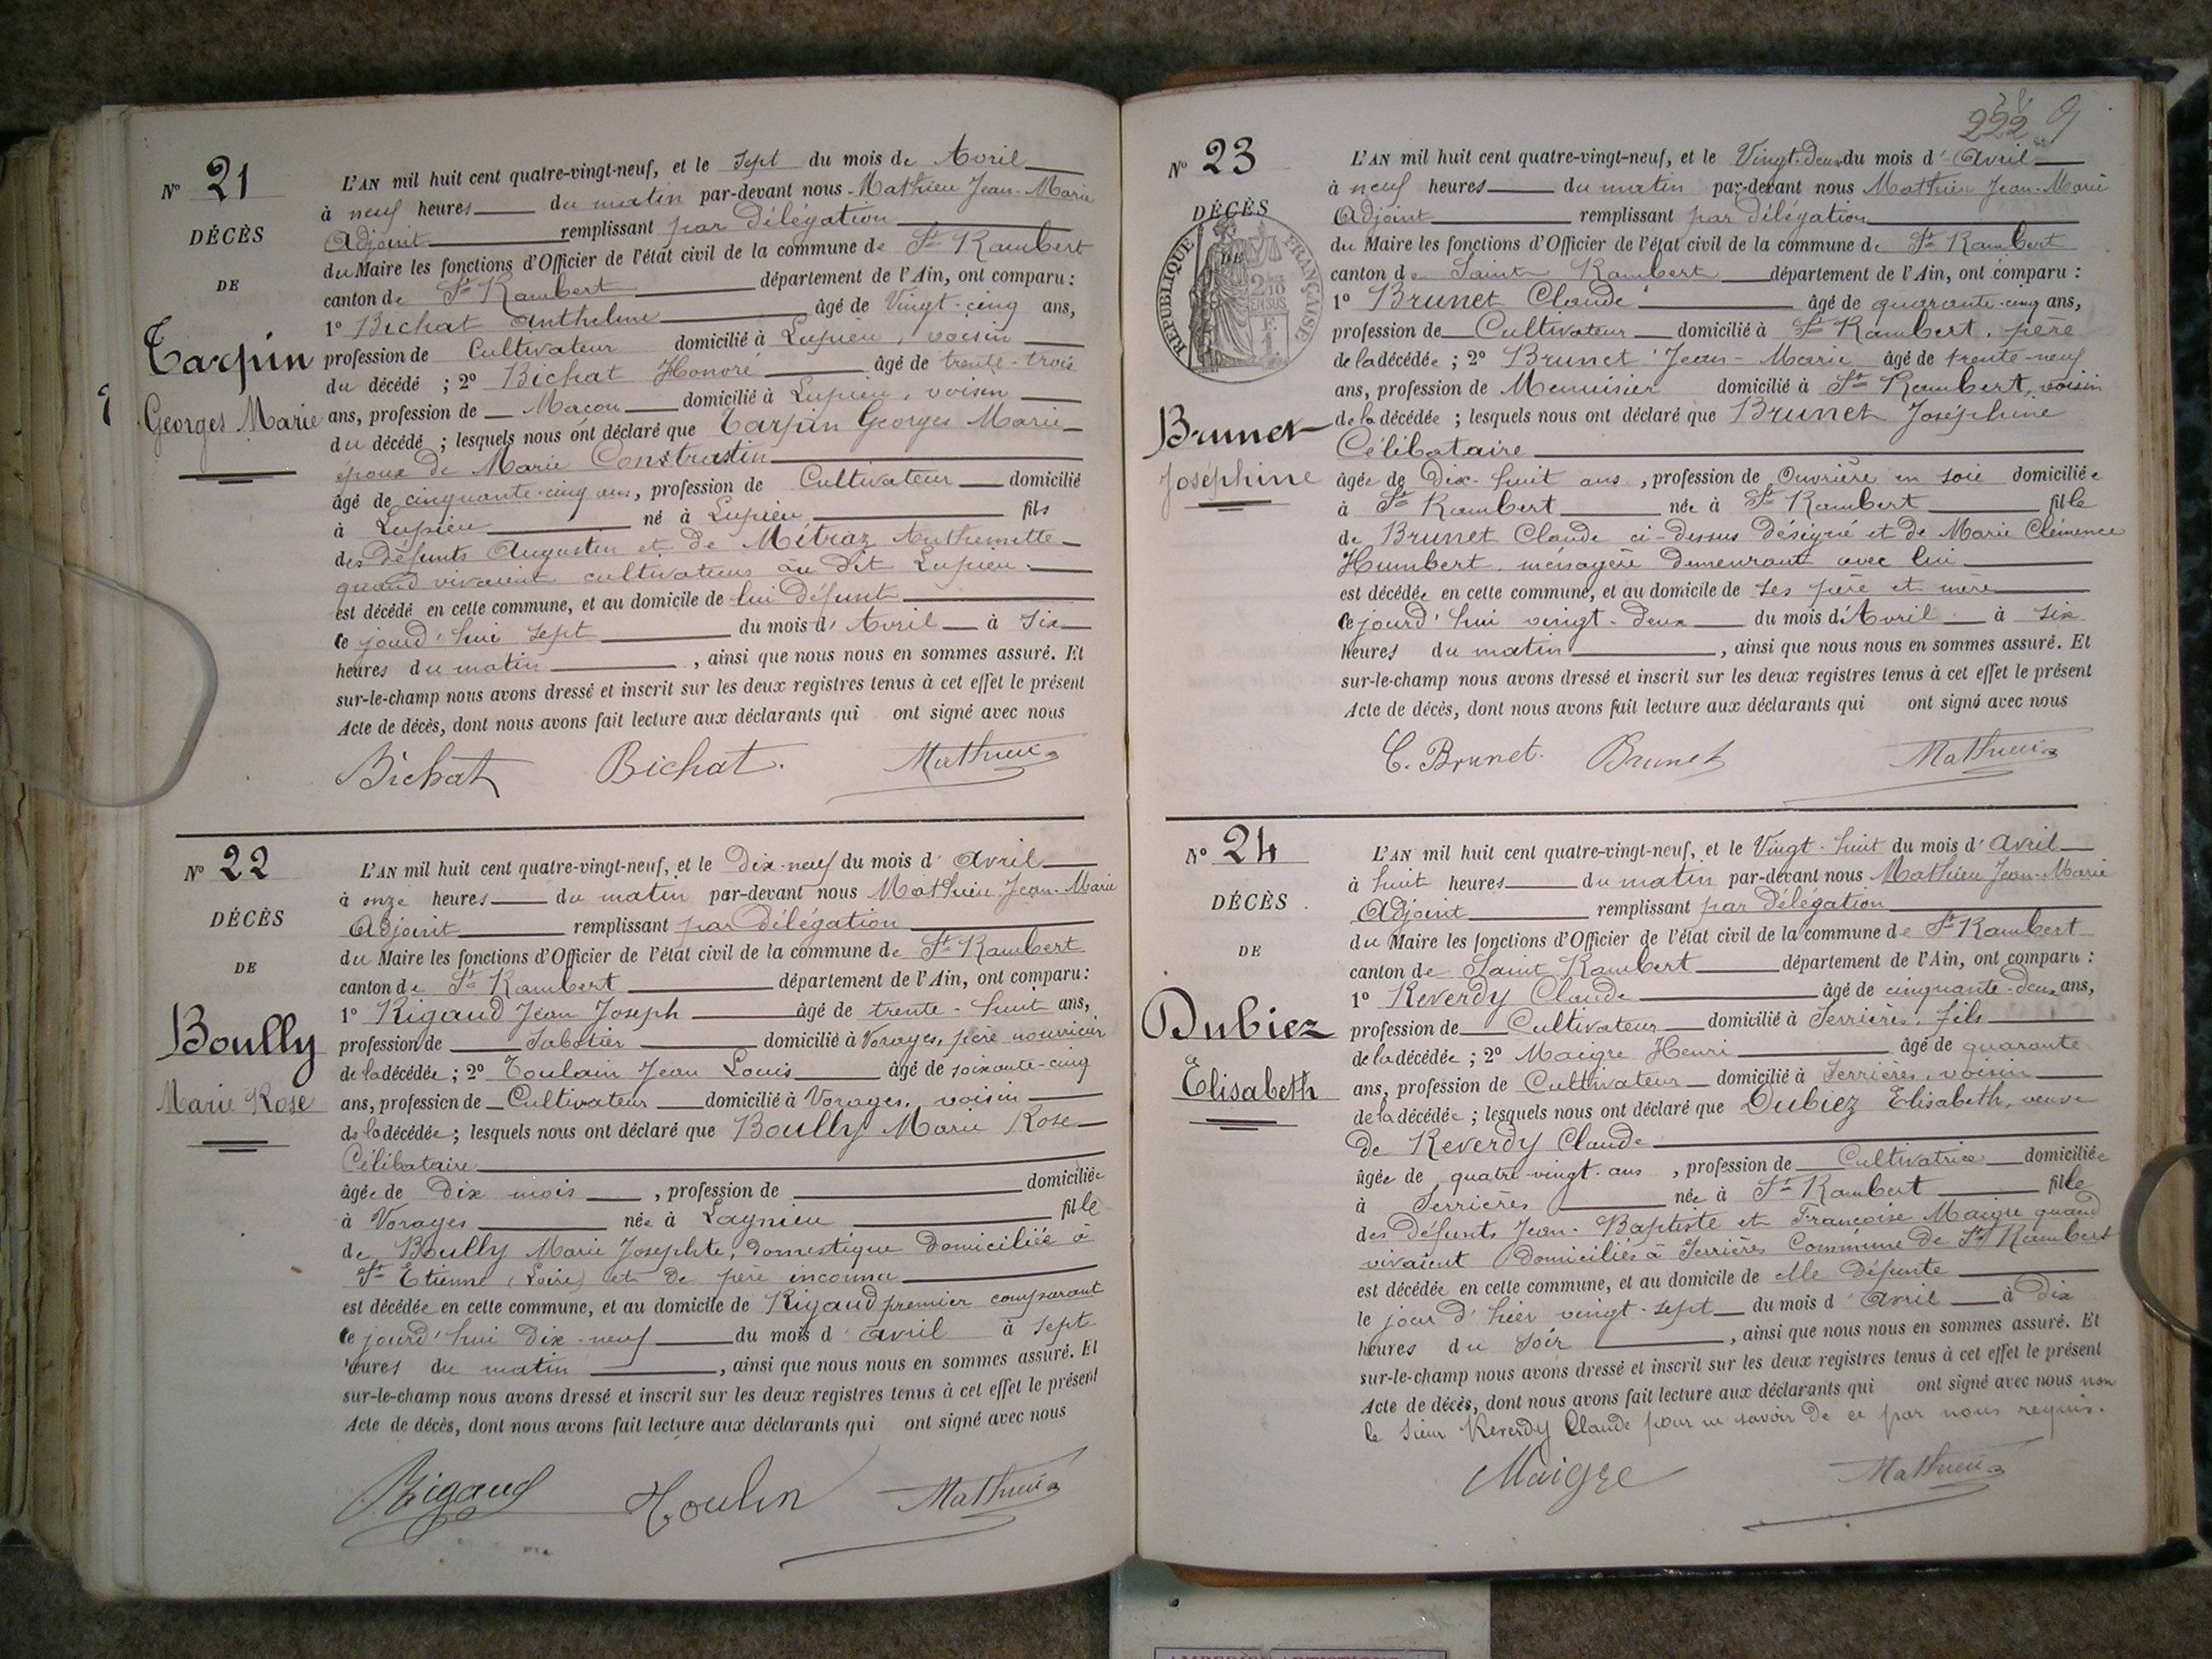 N° 21
DÉCÈS
DE
Tarpin
Georges Marie
L'AN mil huit cent quatre-vingt-neuf, et le sept du mois de Avril
à neuf heures du matin par-devant nous Mathieu Jean-Marie
Adjoint remplissant par Délégation
du Maire les fonctions d'Officier de l'état civil de la commune de St Rambert
canton de St Rambert département de l'Ain, ont comparu :
1° Bichat Anthelme âgé de Vingt-cinq ans,
profession de Cultivateur domicilié à Lupieu, voisin
du décédé ; 2° Bichat Honoré âgé de trente-trois
ans, profession de Maçon domicilié à Lupieu, voisin
du décédé ; lesquels nous ont déclaré que Tarpin Georges Marie
époux de Marie
âgé de cinquante-cinq ans, profession de Cultivateur domicilié
à Lupieu né à Lupieu fils
des Défunts Augustin et de Métraz Anthemette
quand vivaient cultivateurs au dit Lupieu
est décédé en cette commune, et au domicile de lui Défunt
ce jourd'hui sept du mois d'Avril à six
heures du matin , ainsi que nous nous en sommes assuré. Et
sur-le-champ nous avons dressé et inscrit sur les deux registres tenus à cet effet le présent
Acte de décès, dont nous avons fait lecture aux déclarants qui ont signé avec nous
Bichat Bichat. Mathieu
N° 22
DÉCÈS
DE
Boully
Marie Rose
L'AN mil huit cent quatre-vingt-neuf, et le Dix-neuf du mois d'Avril
à onze heures du matin par-devant nous Mathieu Jean-Marie
Adjoint remplissant par Délégation
du Maire les fonctions d'Officier de l'état civil de la commune de St Rambert
canton de St Rambert département de l'Ain, ont comparu :
1° Rigaud Jean Joseph âgé de trente-huit ans,
profession de Sabotier domicilié à Vorages, père nourricier
de la décédée ; 2° Toulain Jean Louis âgé de soixante-cinq
ans, profession de Cultivateur domicilié à Vorages, voisin
de la décédée ; lesquels nous ont déclaré que Boully Marie Rose
Célibataire
âgée de Dix mois , profession de domiciliée
à Vorages née à Lagnieu fille
de Boully Marie Josephte, Domestique Domiciliée à
St Etienne (Loire) et de père inconnu
est décédée en cette commune, et au domicile de Rigaud premier comparant
ce jourd'hui Dix-neuf du mois d'avril à sept
heures du matin , ainsi que nous nous en sommes assuré. Et
sur-le-champ nous avons dressé et inscrit sur les deux registres tenus à cet effet le présent
Acte de décès, dont nous avons fait lecture aux déclarants qui ont signé avec nous
Rigaud Toulin Mathieu
222
N° 23
DÉCÈS
DE
RÉPUBLIQUE FRANÇAISE
Brunet
Joséphine
L'AN mil huit cent quatre-vingt-neuf, et le Vingt-Deux du mois d'Avril
à neuf heures du matin par-devant nous Mathieu Jean-Marie
Adjoint remplissant par Délégation
du Maire les fonctions d'Officier de l'état civil de la commune de St Rambert
canton de Saint Rambert département de l'Ain, ont comparu :
1° Brunet Claude âgé de quarante-cinq ans,
profession de Cultivateur domicilié à St Rambert, père
de la décédée ; 2° Brunet Jean-Marie âgé de trente-neuf
ans, profession de Menuisier domicilié à St Rambert, voisin
de la décédée ; lesquels nous ont déclaré que Brunet Joséphine
Célibataire
âgée de Dix-huit ans , profession de Ouvrière en soie domiciliée
à St Rambert née à St Rambert fille
de Brunet Claude ci-dessus Désigné et de Marie Clémence
Humbert, ménagère Demeurant avec lui
est décédée en cette commune, et au domicile de ses père et mère
ce jourd'hui vingt-deux du mois d'Avril à six
heures du matin , ainsi que nous nous en sommes assuré. Et
sur-le-champ nous avons dressé et inscrit sur les deux registres tenus à cet effet le présent
Acte de décès, dont nous avons fait lecture aux déclarants qui ont signé avec nous
C. Brunet. Brunet Mathieu
N° 24
DÉCÈS
DE
Dubiez
Elisabeth
L'AN mil huit cent quatre-vingt-neuf, et le Vingt-huit du mois d'Avril
à huit heures du matin par-devant nous Mathieu Jean-Marie
Adjoint remplissant par Délégation
du Maire les fonctions d'Officier de l'état civil de la commune de St Rambert
canton de Saint Rambert département de l'Ain, ont comparu :
1° Reverdy Claude âgé de cinquante-deux ans,
profession de Cultivateur domicilié à Serrières, fils
de la décédée ; 2° Maigre Henri âgé de quarante
ans, profession de Cultivateur domicilié à Serrières, voisin
de la décédée ; lesquels nous ont déclaré que Dubiez Elisabeth, veuve
de Reverdy Claude
âgée de quatre-vingt-ans , profession de Cultivatrice domiciliée
à Serrières née à St Rambert fille
des Défunts Jean-Baptiste et Françoise Maigre quand
vivaient Domiciliés à Serrières Commune de St Rambert
est décédée en cette commune, et au domicile de elle Défunte
le jour d'hier vingt-sept du mois d'avril à Dix
heures du soir , ainsi que nous nous en sommes assuré. Et
sur-le-champ nous avons dressé et inscrit sur les deux registres tenus à cet effet le présent
Acte de décès, dont nous avons fait lecture aux déclarants qui ont signé avec nous non
le sieur Reverdy Claude pour ne savoir de ce par nous requis.
Maigre Mathieu